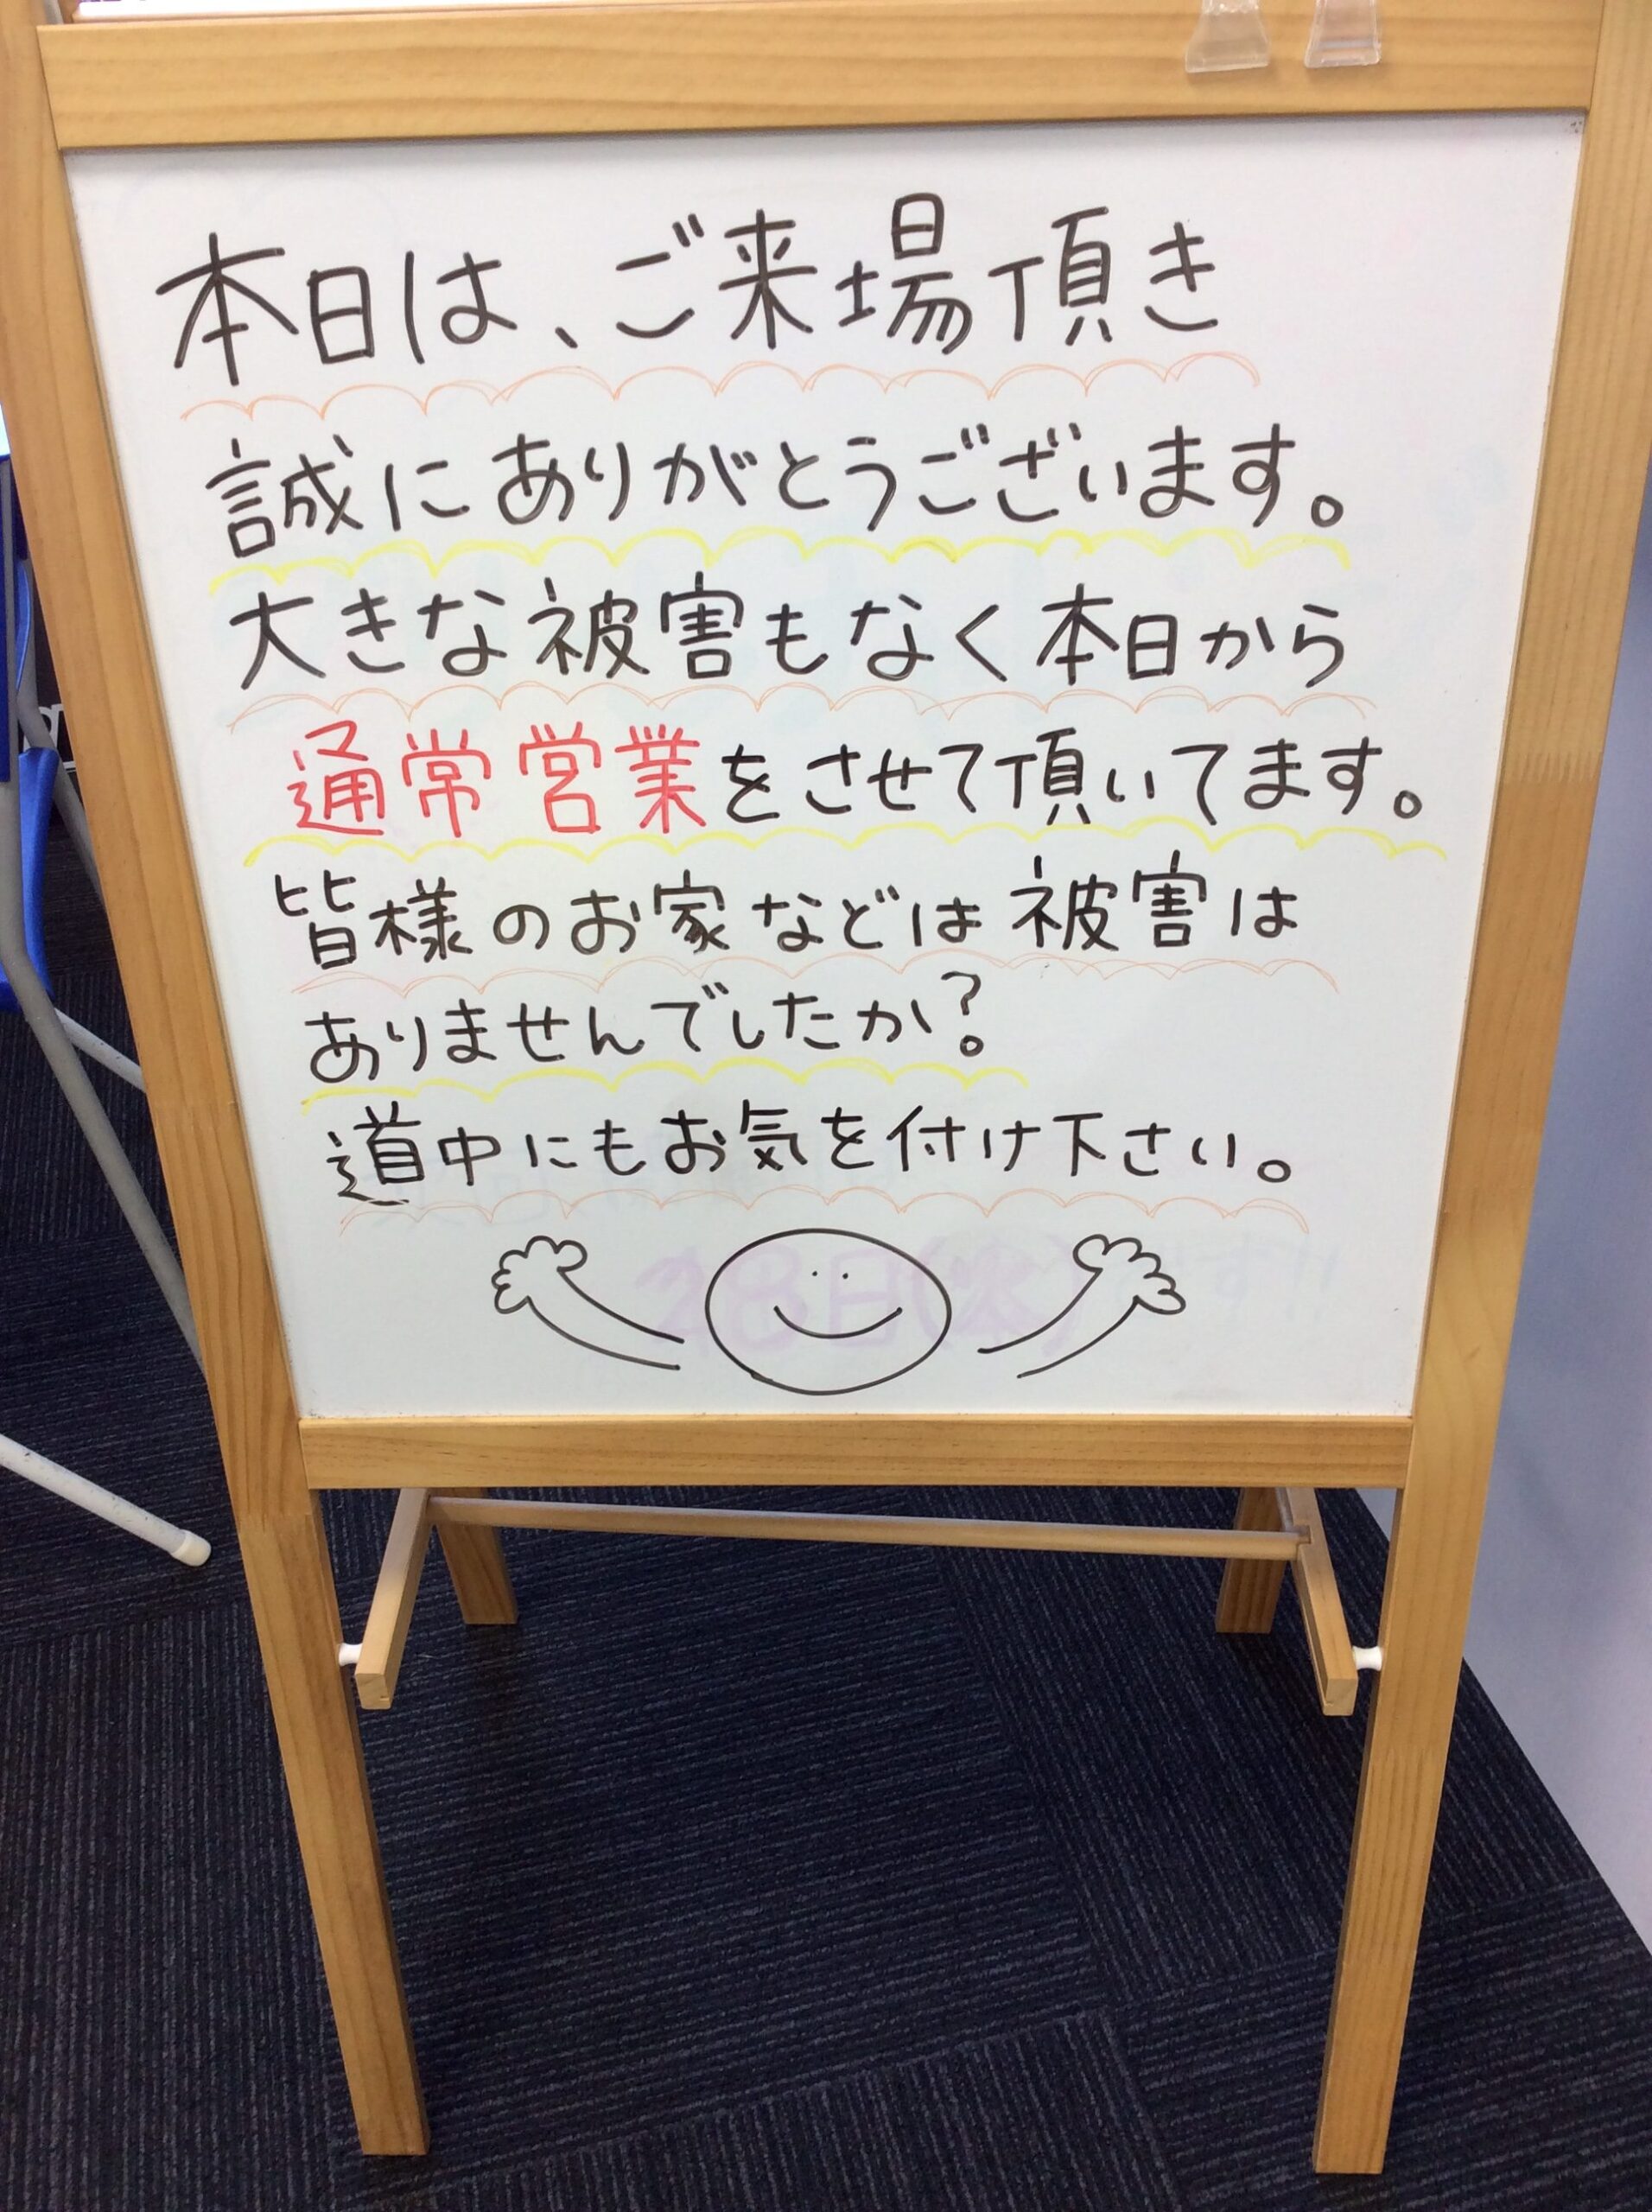 本日は、ご来場頂き
誠にありがとうございます。
大きな被害もなく本日から
通常営業をさせて頂いてます。
皆様のお家などは被害は
ありませんでしたか?
道中にもお気を付け下さい。